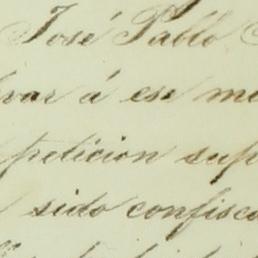 José Pablo
var á ese me
peticion sup
sido confisco